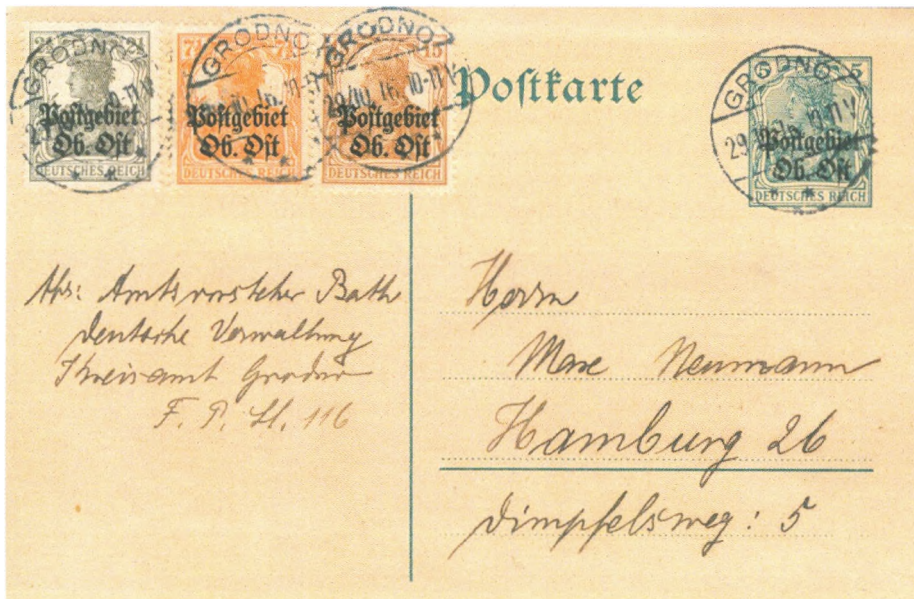 2½ 2½
Postgebiet
Ob. Ost
DEUTSCHES REICH
GRODNO
7½ 7½
Postgebiet
Ob. Ost
DEUTSCHES REICH
GRODNO
15
Postgebiet
Ob. Ost
DEUTSCHES REICH
GRODNO
Postkarte
5
Postgebiet
Ob. Ost
DEUTSCHES REICH
GRODNO
29
Abs: Amtsvorsteher Bath
deutsche Verwaltung
Kreisamt Grodno
F. P. St. 116
Herrn
Max Neumann
Hamburg 26
Dimpfelsweg: 5